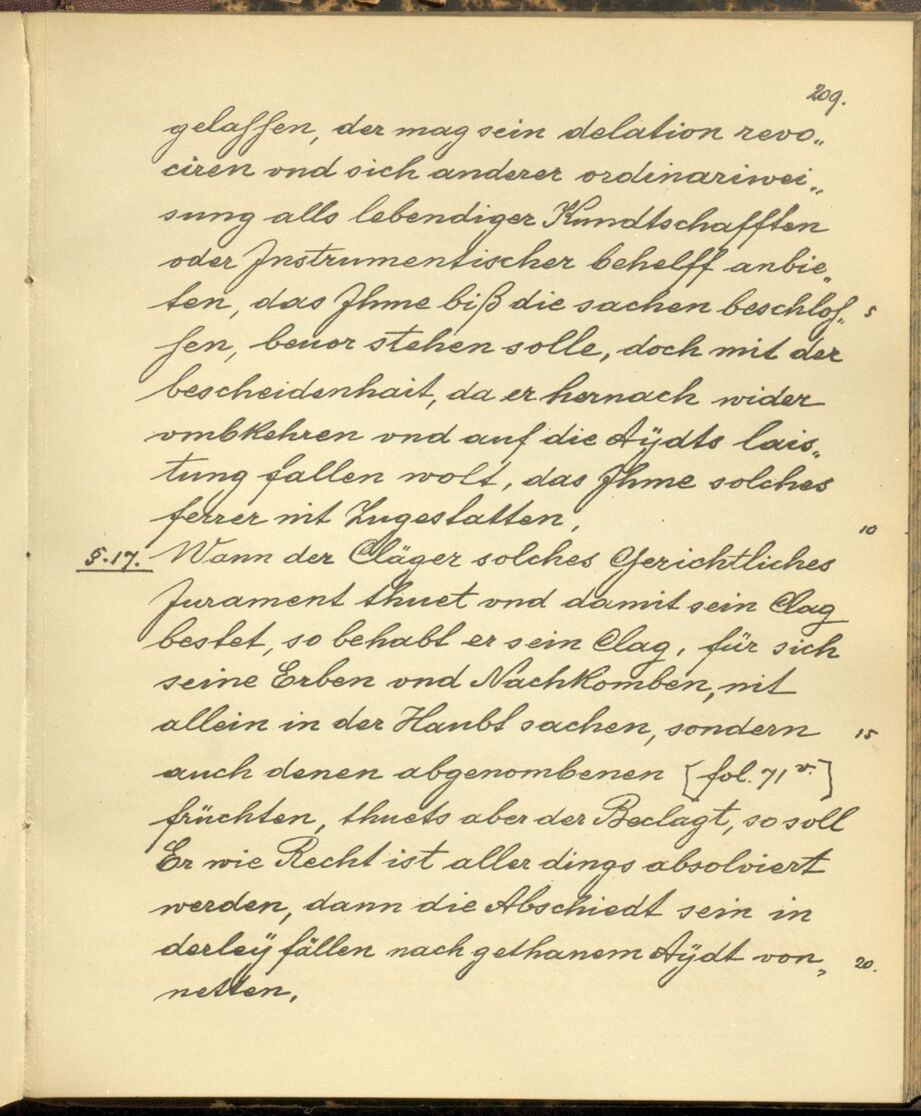 209.
gelassen, der mag sein delation revo„
ciren vnd sich anderer ordinariwei„
sung alls lebendiger Kundtschafften
oder Instrumentischer behelff anbie„
ten, das Ihme biß die sachen beschlos„ 5
sen, beuor stehen solle, doch mit der
bescheidenhait, da er hernach wider
vmbkehren vnd auf die Aÿdts lais„
tung fallen wolt, das Ihme solches
ferrer nit Zugestatten, 10
§.17. Wann der Cläger solches Gerichtliches
Jurament thuet vnd damit sein Clag
bestet, so behabt er sein Clag, für sich
seine Erben vnd Nachkomben, nit
allein in der Haubt sachen, sondern 15
auch denen abgenombenen [fol. 71 v.]
früchten, thuets aber der Beclagt, so soll
Er wie Recht ist aller dings absolviert
werden, dann die Abschiedt sein in
derleÿ fällen nach gethanem Aÿdt von„ 20.
netten,